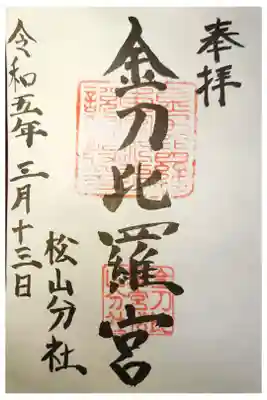 奉拝
金刀比羅宮
松山分社
令和五年三月十三日